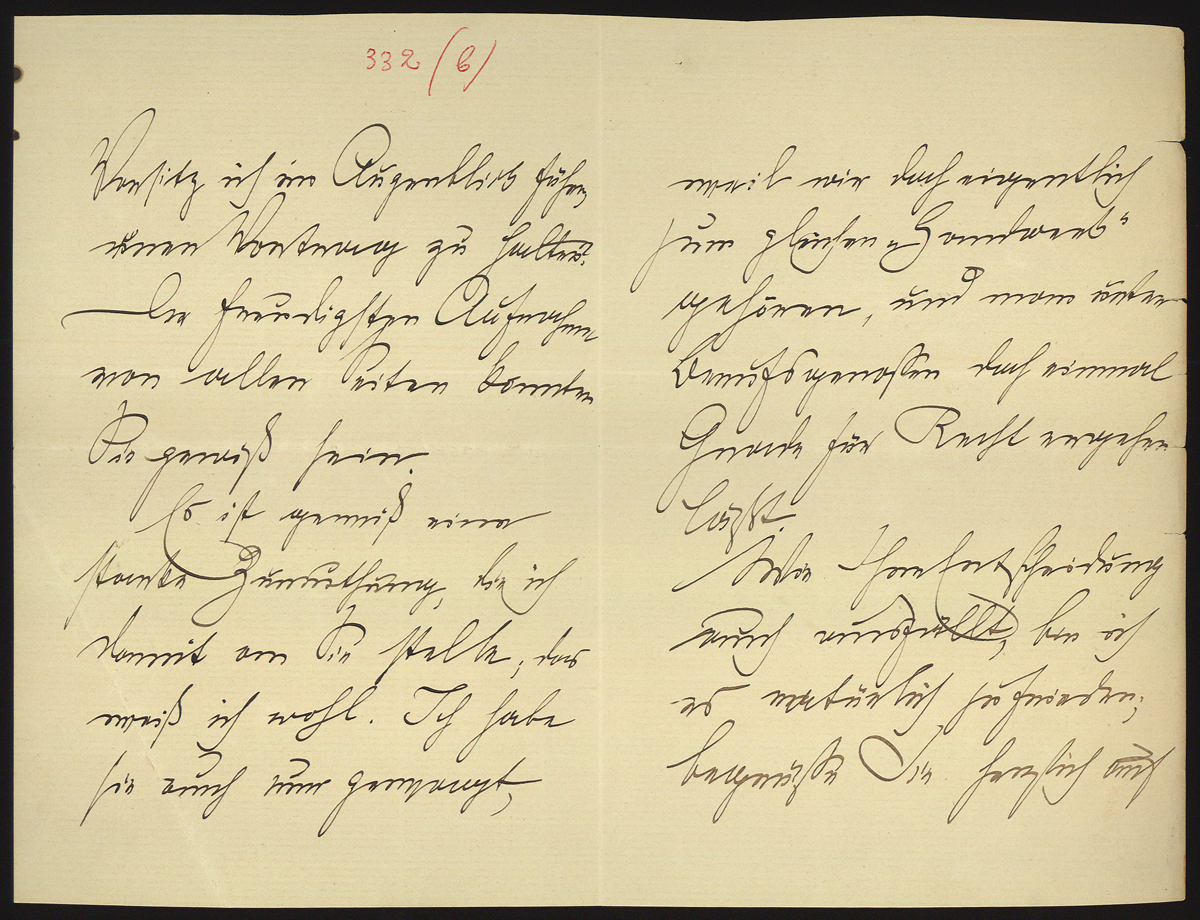 332 (6)
Vorsitz ich im Augenblick führe,
einen Vortrag zu halten.
Der freudigsten Aufnahme
von allen Seiten könnten
Sie gewiß sein.
Es ist gewiß eine
starke Zumuthung, die ich
damit an Sie stelle; das
weiß ich wohl. Ich habe
sie auch nur gewagt,
weil wir doch eigentlich
zum gleichen „Handwerk"
gehören, und man unter
Berufsgenossen doch einmal
Gnade für Recht ergehen
läßt.
Wie Ihre Entscheidung
auch ausfällt, bin ich
es natürlich zufrieden;
begrüße Sie herzlich auf